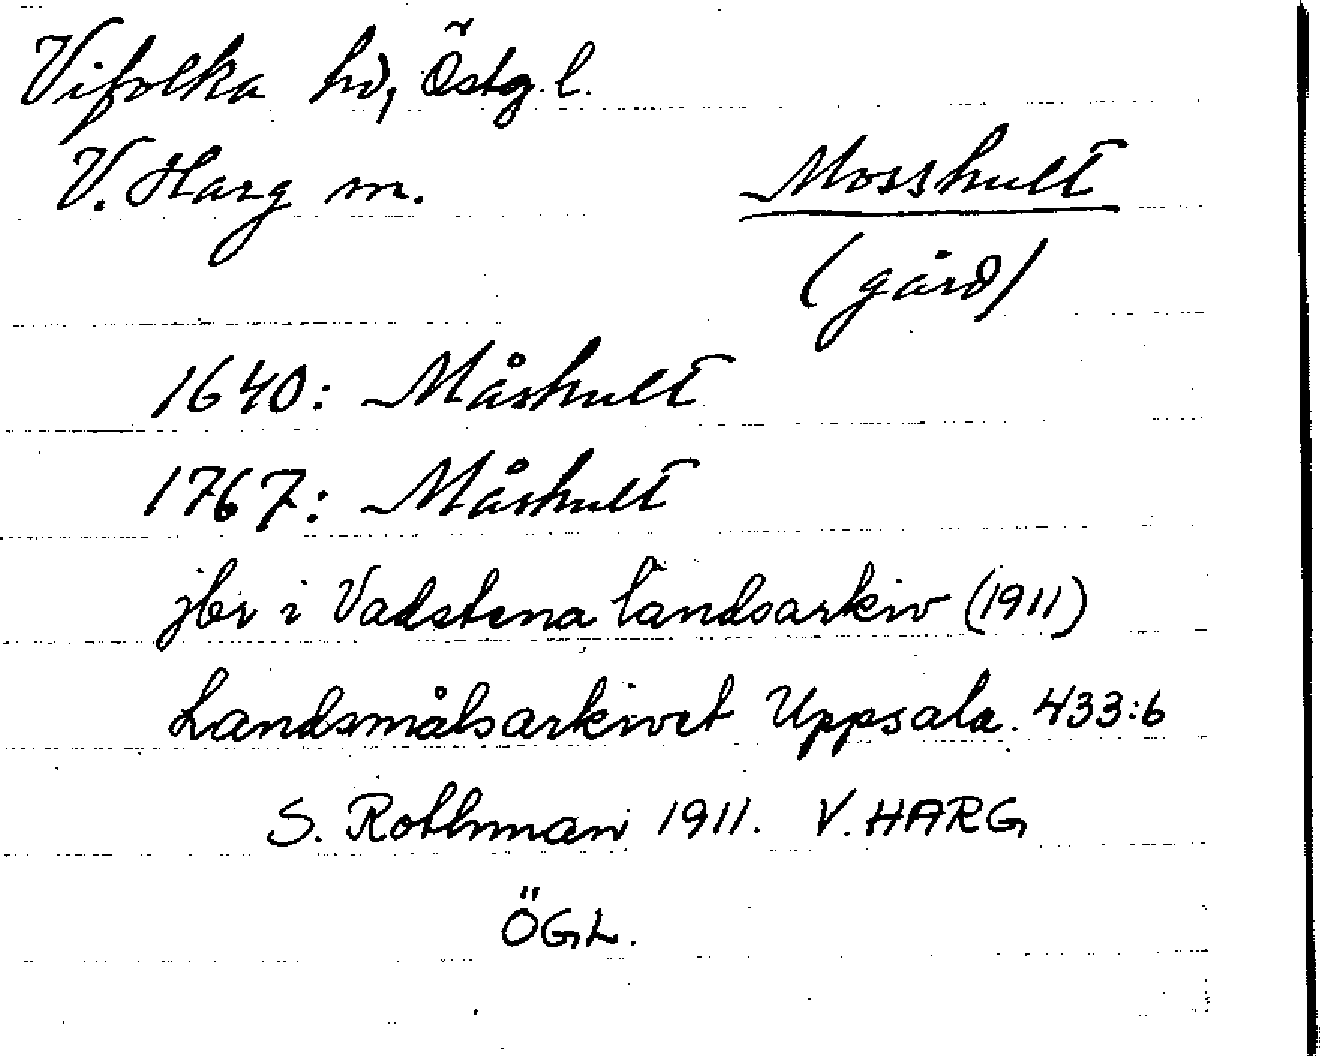 Vifolka hd, Östg. l.
V. Harg sn.
Mosshult
(gård)
1640: Måshult
1767: Måshult
jbr i Vadstena landsarkiv (1911)
Landsmålsarkivet Uppsala. 433:6
S. Rothman 1911. V. HARG
ÖGL.